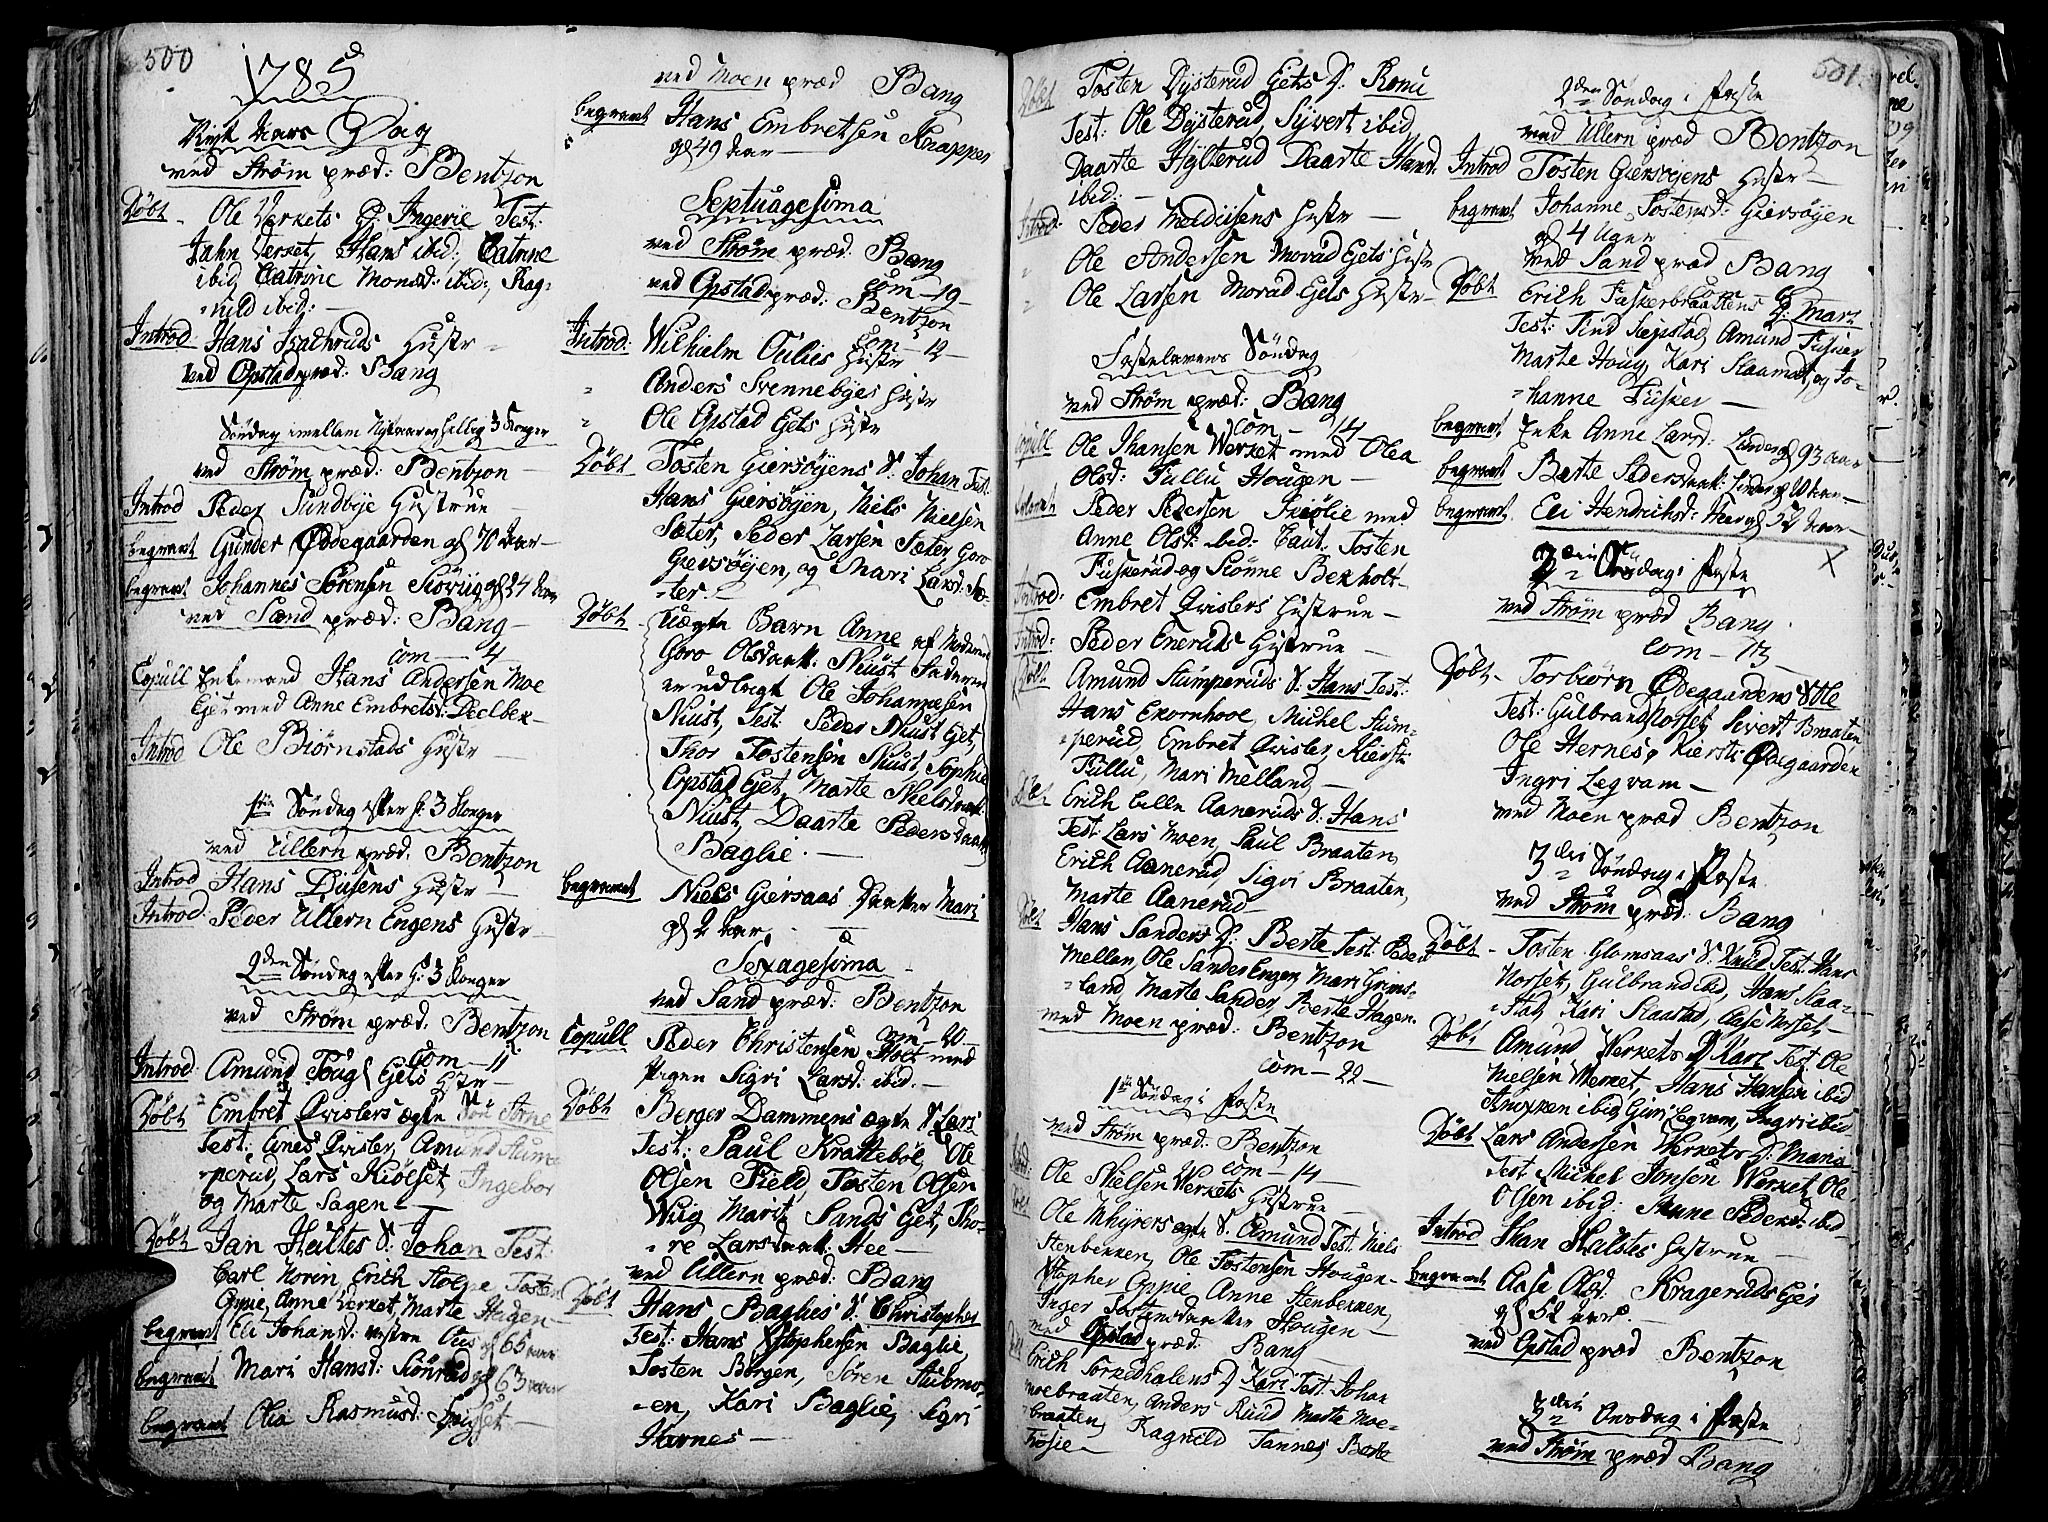 500
1785
Nyt Aars Dag
ved Strøm præd: Bentzon
Døbt - Ole Verkets D: Ingerie Test:
Jahn Verket, Hans ibid: Catrine
ibid Catrine Monsd: ibid, Rag-
-nild ibid: -
Introd Hans Kathruds Hustr -
ved Opstad præd: Bang
Søndag imellem Nytaar og hellig 3 Konger
ved Strøm præd: Bentzon -
Introd Peder Sundbye Hustrue -
begravet Gunder Ødegaarden gl 70 Aar -
begravt Johannes Sørensen Skiøvüg gl 24 Aar
ved Sand præd: Bang -
Com - 4
Copull Enkemand Hans Andersen Moe
Ejet med Anne Embretsd: Deelbek -
Introd Ole Biørnstads Hustr -
1ste Søndag efter h: 3 Konger
ved Ullern præd: Bentzon
Introd Hans Disens Hustr -
Introd: Peder Ullern Engens Hustr -
2den Søndag efter h: 3 Konger
ved Strøm præd: Bentzon
Com - 11
Introd: Amund Toug Ejets Hstr -
Døbt Embret Qvislers ægte Søn Arne
Test: Anes Qvisler, Amund Stum-
-perud, Lars Kiølset, Ingebor
og Marte Sagen -
Døbt Jan Hultes S: Johan Test:
Carl Norin, Erich Stolpe Tosten
Oppie, Anne Verket, Marte Heigen -
begravt Eli Johansd: vestre Aas gl 65 aar
begravet Mari Hansd: Skiønrud gl 63 aar
begravt Olia Rasmusd:
ved Moen præd Bang
begravt Hans Embretsen Knapper
gl 49 Aar -
Septuagesima
ved Strøm præd: Bang
Com - 19 -
ved Opstad præd: Bentzon
Com - 12 -
Introd: Wilhelm Oulies Hustr
" Anders Svennebyes Hustr
" Ole Opstad Ejets Hustr
Døbt Tosten Giersøyens S: Johan Test:
Hans Giersøyen, Niels Nielsen
Sæter, Peder Larsen Sæter Goro
Giersøyen, og Mari Larsd: Sæ-
-ter. -
Døbt - Uægte Barn Anne af Moderen
Goro Olsdaatt: Nuust Faderen
er udlagt Ole Johannesen
Nuust, Test: Peder Nuust Ejet,
Thor Tostensen Nuust, Sophie
Opstad Ejet, Marte Nielsdaatt:
Nuust, Daarte Pedersdaatt
Baglie. -
begravet Niels Giersaas Daatter Mari
gl 2 Aar. -
Sexagesima -
ved Sand præd: Bentzon
Com - 20 -
Copull Peder Christensen Holt med
Pigen Sigri Larsd: ibid. -
Døbt Berger Dammens ægte S: Lars
Test: Paul Krattebøl, Ole
Olsen Field, Tosten Olsen
Wüig Marit Sands Ejet, Tho-
-re Larsdaatt: Hee -
ved Ullern præd: Bang
Døbt Hans Baglies S: Christopher
Test: Hans Stophersen Baglie,
Tosten Borgen, Søren Stubmo-
-en, Kari Baglie, Sigri
Harnes -
Døbt Tosten Dysterud Ejets D: Romu
Test: Ole Dysterud, Syvert ibid
Daarte Hylterud Daarte Hansd:
ibid: -
Introd: Peder Moldüsens Hustr -
" Ole Andersen Morud Ejets Hustr
" Ole Larsen Morud Ejets Hustr -
Fastelavens Søndag
ved Strøm præd: Bang
Com - 14
Copull Ole Jhansen Werket med Olea
Olsd: Fullu Hougen -
Peder Pedersen Friølie med
Anne Olsd: ibid: Caut: Tosten
Fuskerud og Skiønne Bekholt -
Introd: Embret Qvislers Hustrue -
Introd: Peder Eneruds Hustrue -
Døbt Amund Stumperuds S: Hans Test:
Hans Ekornhool, Michel Stum-
-perud, Embret Qvisler, Kiersti
Fullu, Mari Melland, -
Døbt Erich Lille Aaneruds S: Hans
Test: Lars Moen, Paul Braaten,
Erich Aanerud, Sigri Braaten,
Marte Aanerud -
Døbt Hans Sanders D: Berte Test: Peder
Mellem, Ole Sander Engen, Mari Grims-
-land, Marte Sander, Berte Hagen.
ved Moen præd: Bentzon
Com - 22 -
1ste Søndag i Faste
ved Strøm præd: Bentzon
Com - 14 -
Introd: Ole Nielsen Verkets Hustrue -
Døbt Ole Mhyrers ægte S: Amund Test: Niels
Stenbekken, Ole Tostensen Hougen -
Stopher Oppie Anne Stenbekken,
Inger Tostensdaatter Hougen -
ved Opstad præd: Bang -
Døbt Erich Torkedhalens D: Kari Test: Johan
Moebraaten, Anders Ruud Marte Moe-
-braaten, Ragnild Tannes, Berte
Trosie -
501.
2den Søndag i Faste
ved Ullern præd Bentzon
Introd Tosten Giersøyens Hustr -
begravt Johanne Tostensd: Giersøyen
gl 4 Uger -
ved Sand præd Bang
Com -
Døbt Erich Fuskerbraatens D: Mari
Test: Find Siepstad, Amund Fusker
Marte Houg, Kari Slaamot, og Jo-
-hanne Fusker -
begravt Enke Anne Larsd: Linder gl 93 aar
begravt Berte Pedersdaatt: Linder gl 10 Aar -
begravt Eli Hendrichsd: Heer gl 52 Aar -
2den Onsdag i Faste X
ved Strøm præd Bang
Com - 13 -
Døbt - Torbiørn Ødegaardens S Ole
Test: Gulbrand Norset, Severt Braaten,
Ole Hernes, Kiersti Ødegaarden
Ingri Legvam -
ved Moen præd Bentzon
3die Søndag i Faste
ved Strøm præd: Bang
Døbt - Tosten Glomsaas S: Knud Test: Hans
Norset, Gulbrand ibid, Hans Slaa-
-stad, Kari Slaastad, Aase Norset -
Døbt Amund Verkets D: Kari Test: Ole
Nielsen Werket, Hans Hansen ibid
Anoxken ibid, Guri Legvam, Ingri ibid
Døbt Lars Andersen Werkets D: Maria
Test: Michel Jonsen Werket, Ole
Olsen ibid: Anne Pedersd: ibid -
Introd Jhan Hulstes Hustrue -
begravt Aase Olsd: Krageruds Ejet
gl 52 aar.
ved Opstad præd Bentzon
3die Onsdag i Faste
ved Strøm præd Bang